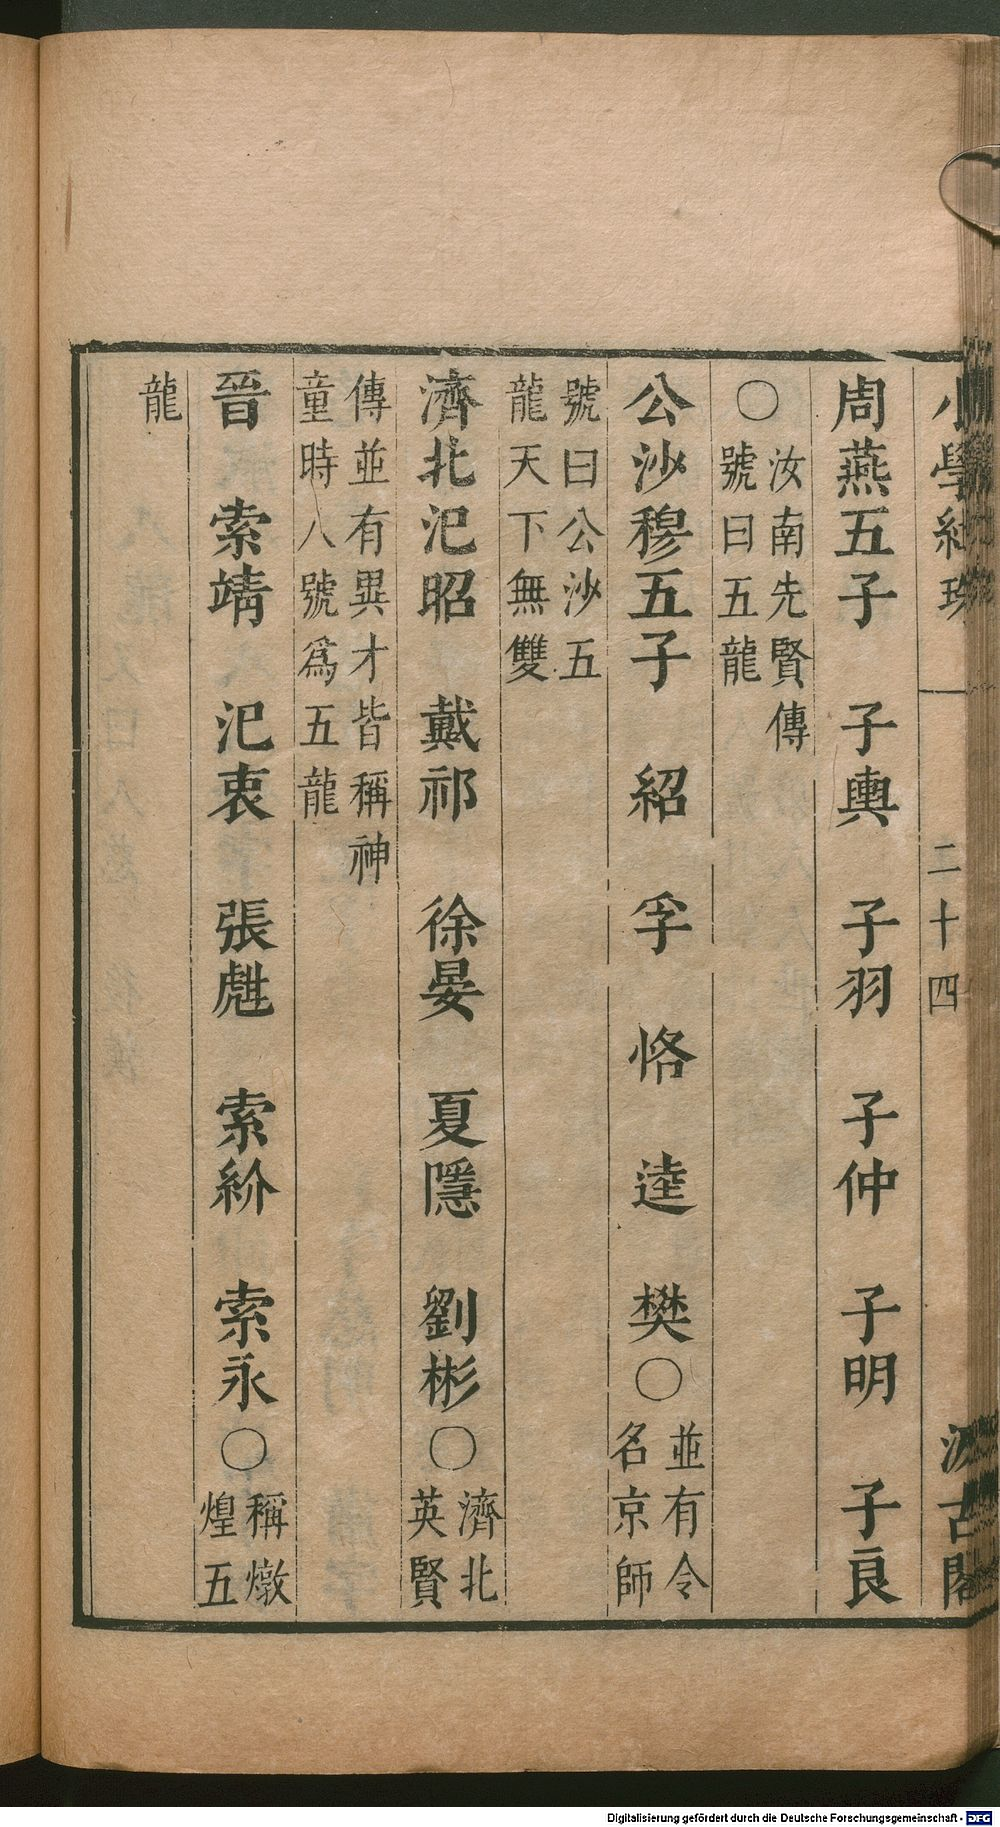 小學紺珠 二十四 汲古閣
周燕五子 子輿 子羽 子仲 子明 子良
○汝南先賢傳
號曰五龍
公沙穆五子 紹 孚 恪 逵 樊○並有令
名京師
號曰公沙五
龍天下無雙
濟北氾昭 戴祁 徐晏 夏隱 劉彬○濟北
英賢
傳並有異才皆稱神
童時人號爲五龍
晉 索靖 氾衷 張甝 索紾 索永○稱燉
煌五
龍
Digitalisierung gefördert durch die Deutsche Forschungsgemeinschaft - DFG